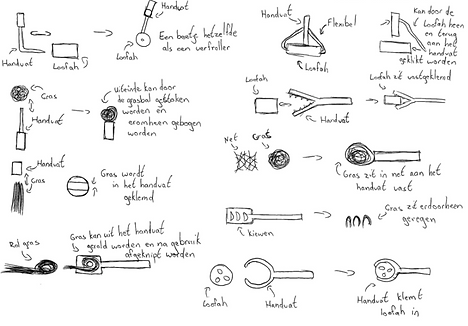 Handvat
Handvat
Loofah
Loofah
Een beetje hetzelfde
als een verfroller
Handvat
Flexibel
Loofah
Kan door de
loofah heen
en terug
aan het
handvat
geklikt worden
Gras
Handvat
Uiteinde kan door
de grasbal gestoken
worden en
eromheen gebogen
worden
Loofah
Handvat
Loofah zit vastgeklemd
Handvat
Gras
Gras wordt
in het handvat
geklemd
Net
Gras
Gras zit in net aan het
handvat vast
Rol gras
Gras kan uit het handvat
gerold worden en na gebruik
afgeknipt worden
kieuwen
Gras zit erdoorheen
geregen
Loofah
Handvat
Handvat klemt
loofah in